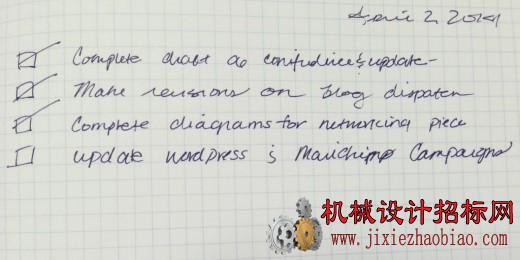 June 2, 2014
Complete draft as conference & update -
Make revisions on blog dispatch
Complete diagrams for networking piece
update wordpress & Mailchimp Campaigns
机械设计招标网
www.jixiezhaobiao.com